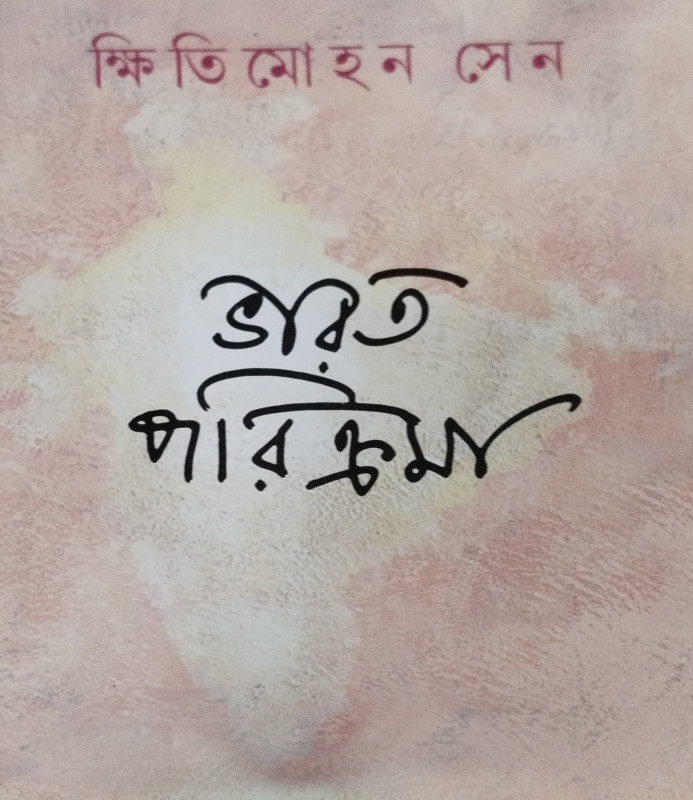 ক্ষিতিমোহন সেন
ভারত
পরিক্রমা